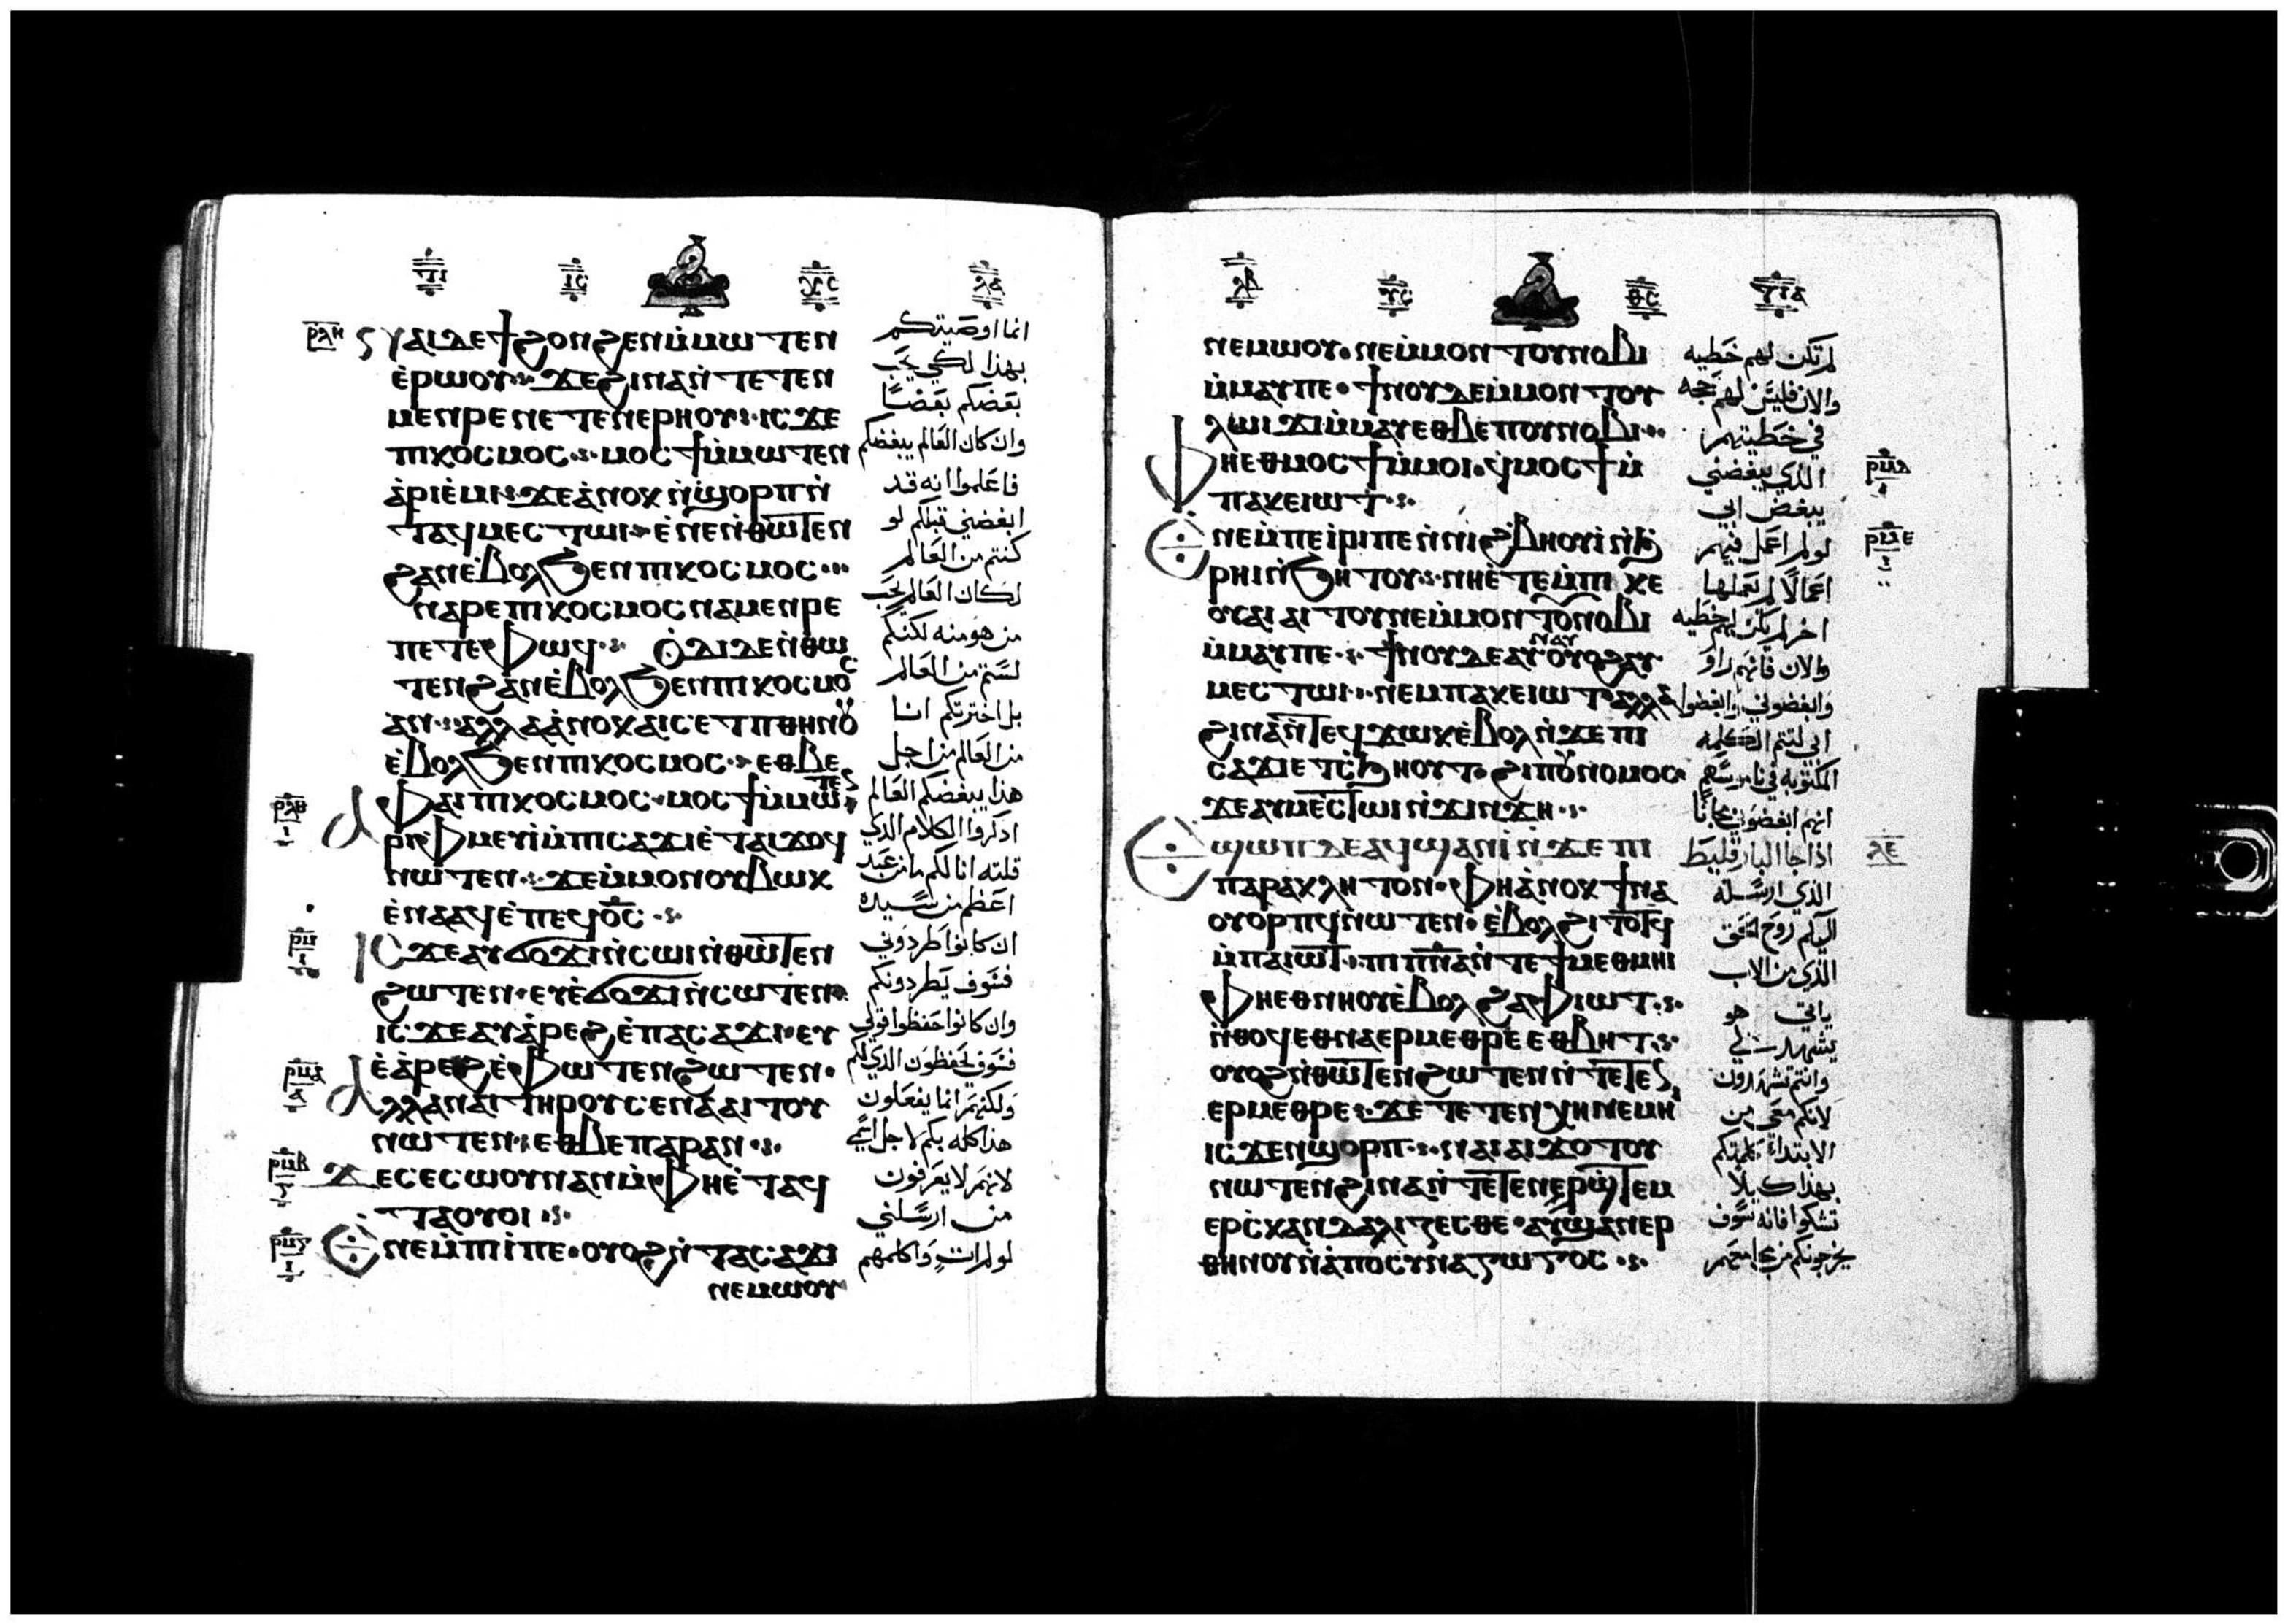 ⲛⲁⲓ ⲇⲉ ϯϩⲟⲛϩⲉⲛ ⲙ̇ⲙⲱⲧⲉⲛ
ⲉ̇ⲣⲱⲟⲩ ϫⲉ ϩⲓⲛⲁ ⲛ̇ⲧⲉⲧⲉⲛ
ⲙⲉⲛⲣⲉ ⲛⲉⲧⲉⲛⲉⲣⲏⲟⲩ ⲓⲥϫⲉ
ⲡⲓⲕⲟⲥⲙⲟⲥ ⲙⲟⲥϯ ⲙ̇ⲙⲱⲧⲉⲛ
ⲁ̇ⲣⲓⲉ̇ⲙⲓ ϫⲉ ⲁ̇ⲛⲟⲕ ⲛ̇ϣⲟⲣⲡ ⲛ̇
ⲧⲁϥⲙⲉⲥⲧⲱⲓ ⲉ̇ⲛⲉ ⲛ̇ⲑⲱⲧⲉⲛ
ϩⲁⲛⲉ̇ⲃⲟⲗ ϧⲉⲛ ⲡⲓⲕⲟⲥⲙⲟⲥ
ⲛⲁⲣⲉ ⲡⲓⲕⲟⲥⲙⲟⲥ ⲛⲁⲙⲉⲛⲣⲉ
ⲡⲉⲧⲉ ⲫⲱϥ ⲟ̇ⲇⲓ ⲇⲉ ⲛ̇ⲑⲱ
ⲧⲉⲛ ϩⲁⲛⲉ̇ⲃⲟⲗ ϧⲉⲛ ⲡⲓⲕⲟⲥⲙⲟⲥ
ⲁⲛ ⲁⲗⲗⲁ ⲁ̇ⲛⲟⲕ ⲁⲓⲥⲉⲧⲡ ⲑⲏⲛⲟⲩ
ⲉ̇ⲃⲟⲗ ϧⲉⲛ ⲡⲓⲕⲟⲥⲙⲟⲥ ⲉⲑⲃⲉ
ⲫⲁⲓ ⲡⲓⲕⲟⲥⲙⲟⲥ ⲙⲟⲥϯ ⲙ̇ⲙⲱⲧⲉⲛ
ⲁⲣⲓⲫⲙⲉⲩⲓ̇ ⲙ̇ⲡⲓⲥⲁϫⲓ ⲉ̇ⲧⲁⲓϫⲟϥ
ⲛⲱⲧⲉⲛ ϫⲉ ⲙ̇ⲙⲟⲛ ⲟⲩⲃⲱⲕ
ⲉ̇ⲛⲁⲁϥ ⲉ̇ⲡⲉϥⲟ̅ⲥ̅
ⲓⲥϫⲉ ⲁⲩϭⲟϫⲓ ⲛ̇ⲥⲱⲓ ⲛ̇ⲑⲱⲧⲉⲛ
ϩⲱⲧⲉⲛ ⲉⲩⲉ̇ϭⲟϫⲓ ⲛ̇ⲥⲱⲧⲉⲛ
ⲓⲥϫⲉ ⲁⲩⲁ̇ⲣⲉϩ ⲉ̇ⲡⲁⲥⲁϫⲓ ⲉⲩ
ⲉ̇ⲁ̇ⲣⲉϩ ⲉ̇ⲫⲱⲧⲉⲛ ϩⲱⲧⲉⲛ
ⲁⲗⲗⲁ ⲛⲁⲓ ⲧⲏⲣⲟⲩ ⲥⲉⲛⲁⲁⲓⲧⲟⲩ
ⲛⲱⲧⲉⲛ ⲉⲑⲃⲉ ⲡⲁⲣⲁⲛ
ϫⲉ ⲥⲉⲥⲱⲟⲩⲛ ⲁⲛ ⲙ̇ⲫⲏ ⲉ̇ⲧⲁϥ
ⲧⲁⲟⲩⲟⲓ
ⲛⲉ ⲙ̇ⲡⲓⲓ̇ ⲡⲉ ⲟⲩⲟϩ ⲛ̇ⲧⲁⲥⲁϫⲓ
ⲛⲉⲙⲱⲟⲩ
انما اوصيتكم
بهذا لكي يحب
بعضكم بعضًا
وان كان العالم يبغضكم
فاعلموا انه قد
ابغضني قبلكم لو
كنتم من العالم
لكان العالم يحب
من هو منه لكنكم
لستم من العالم
بل اخترتكم انا
من العالم من اجل
هذا يبغضكم العالم
اذكروا الكلام الذي
قلته انا لكم ما من عبد
اعظم من سيده
ان كانوا طردوني
فسوف يطردونكم
وان كانوا حفظوا قولي
فسوف يحفظون الذي لكم
ولكنهم انما يفعلون
هذا كله بكم لاجل اسمي
لانهم لا يعرفون
من ارسلني
لو لم ات واكلمهم
ⲛⲉⲙⲱⲟⲩ ⲛⲉ ⲙ̇ⲙⲟⲛ ⲧⲟⲩ ⲛⲟⲃⲓ
ⲙ̇ⲙⲁⲩ ⲡⲉ ϯⲛⲟⲩ ⲇⲉ ⲙ̇ⲙⲟⲛ ⲧⲟⲩ
ⲗⲱⲓϫⲓ ⲙ̇ⲙⲁⲩ ⲉⲑⲃⲉ ⲡⲟⲩⲛⲟⲃⲓ
ⲫⲏ ⲉⲑⲙⲟⲥϯ ⲙ̇ⲙⲟⲓ ϥⲙⲟⲥϯ ⲙ̇
ⲡⲁⲕⲉⲓⲱⲧ
ⲛⲉ ⲙ̇ⲡⲉⲓ̇ⲣⲓ ⲡⲉ ⲛ̇ⲛⲓϩⲃⲏⲟⲩⲓ̇ ⲛ̇ϧ
ⲣⲏⲓ ⲛ̇ϧⲏⲧⲟⲩ ⲛⲏ ⲉ̇ⲧⲉ ⲙ̇ⲡⲓⲕⲉ
ⲟⲩⲁⲓ ⲁⲓⲧⲟⲩ ⲛⲉ ⲙ̇ⲙⲟⲛ ⲧⲟⲩ ⲛⲟⲃⲓ
ⲙ̇ⲙⲁⲩ ⲡⲉ ϯⲛⲟⲩ ⲇⲉ ⲁⲩⲛⲁⲩ ⲟⲩⲟϩ ⲁⲩ
ⲙⲉⲥⲧⲱⲓ ⲛⲉⲙ ⲡⲁⲕⲉⲓⲱⲧ ⲁⲗⲗⲁ
ϩⲓⲛⲁ ⲛ̇ⲧⲉϥϫⲱⲕ ⲉ̇ⲃⲟⲗ ⲛ̇ϫⲉ ⲡⲓ
ⲥⲁϫⲓ ⲉⲧⲥϧⲏⲟⲩⲧ ϩⲓ ⲡⲟⲩⲛⲟⲙⲟⲥ
ϫⲉ ⲁⲩⲙⲉⲥⲧⲱⲓ ⲛ̇ϫⲓⲛϫⲏ
ϣⲱⲡ ⲇⲉ ⲁϥϣⲁⲛⲓ̇ ⲛ̇ϫⲉ ⲡⲓ
ⲡⲁⲣⲁⲕⲗⲏⲧⲟⲛ ⲫⲏ ⲁ̇ⲛⲟⲕ ϯⲛⲁ
ⲟⲩⲟⲣⲡϥ ⲛⲱⲧⲉⲛ ⲉ̇ⲃⲟⲗ ϩⲓⲧⲟⲧϥ
ⲙ̇ⲡⲁⲓⲱⲧ ⲡⲓⲡ̅ⲛ̅ⲁ̅ ⲛ̇ⲧⲉ ϯⲙⲉⲑⲙⲏⲓ
ⲫⲏ ⲉⲑⲛⲏⲟⲩ ⲉ̇ⲃⲟⲗ ϩⲁ ⲫⲓⲱⲧ
ⲛ̇ⲑⲟϥ ⲉⲑⲛⲁⲉⲣⲙⲉⲑⲣⲉ ⲉⲑⲃⲏⲧ
ⲟⲩⲟϩ ⲛ̇ⲑⲱⲧⲉⲛ ϩⲱⲧⲉⲛ ⲛ̇ⲧⲉⲧⲉⲛ
ⲉⲣⲙⲉⲑⲣⲉ ϫⲉ ⲧⲉⲧⲉⲛⲭⲏ ⲛⲉⲙⲏⲓ
ⲓⲥϫⲉⲛ ϣⲟⲣⲡ ⲛⲁⲓ ⲁⲓϫⲟⲧⲟⲩ
ⲛⲱⲧⲉⲛ ϩⲓⲛⲁ ⲛ̇ⲧⲉⲧⲉⲛ̇ϣⲧⲉⲙ
ⲉⲣⲥⲕⲁⲛⲇⲁⲗⲓⲍⲉⲥⲑⲉ ⲁⲩϣⲁⲛⲉⲣ
ⲑⲏⲛⲟⲩ ⲛ̇ⲁ̇ⲡⲟⲥⲩⲛⲁⲅⲱⲅⲟⲥ
لم تكن لهم خطيه
والان فليس لهم حجه
في خطيتهم
الذي يبغضني
يبغض ابي
لو لم اعمل فيهم
اعمالًا لم يعملها
اخر لم يكن لهم خطيه
والان فانهم راو
وابغضوني وابغضوا
ابي لتتم الكلمه
المكتوبه في ناموسهم
انهم ابغضوني مجانًا
اذا جا البارقليط
الذي ارسله
اليكم روح الحق
الذي من الاب
ياتي هو
يشهد لي
وانتم تشهدون
لانكم معي من
الابتداء كلمتكم
بهذا كيلا
تشكوا فانه سوف
يخرجونكم من مجامعهم